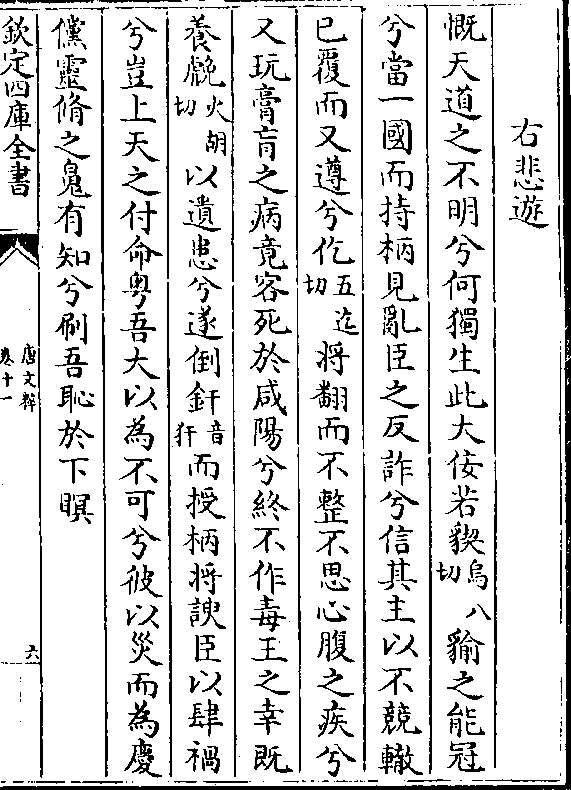 右悲遊
慨天道之不明兮何獨生此大佞若猰烏八切貐之能冠
兮當一國而持柄見亂臣之反詐兮信其主以不競轍
已覆而又遵兮仡五迄切將翻而不整不思心腹之疾兮
又玩膏肓之病竟客死於咸陽兮終不作毒王之幸既
養虓火胡切以遺患兮遂倒釬音犴而授柄將諛臣以肆禍
兮豈上天之付命粵吾大以為不可兮彼以災而為慶
儻靈脩之䰟有知兮刷吾恥於下瞑
欽定四庫全書
唐文粹
卷十一
六